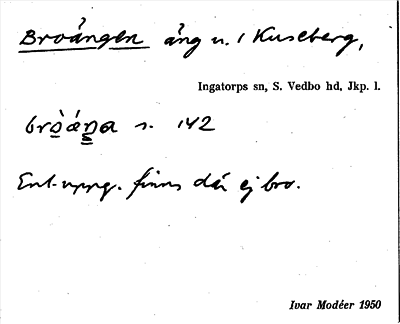 Broängen äng u. 1 Kuseberg,
Ingatorps sn, S. Vedbo hd, Jkp. l.
s. 142
Enl. uppg. finns där ej bro.
Ivar Modéer 1950